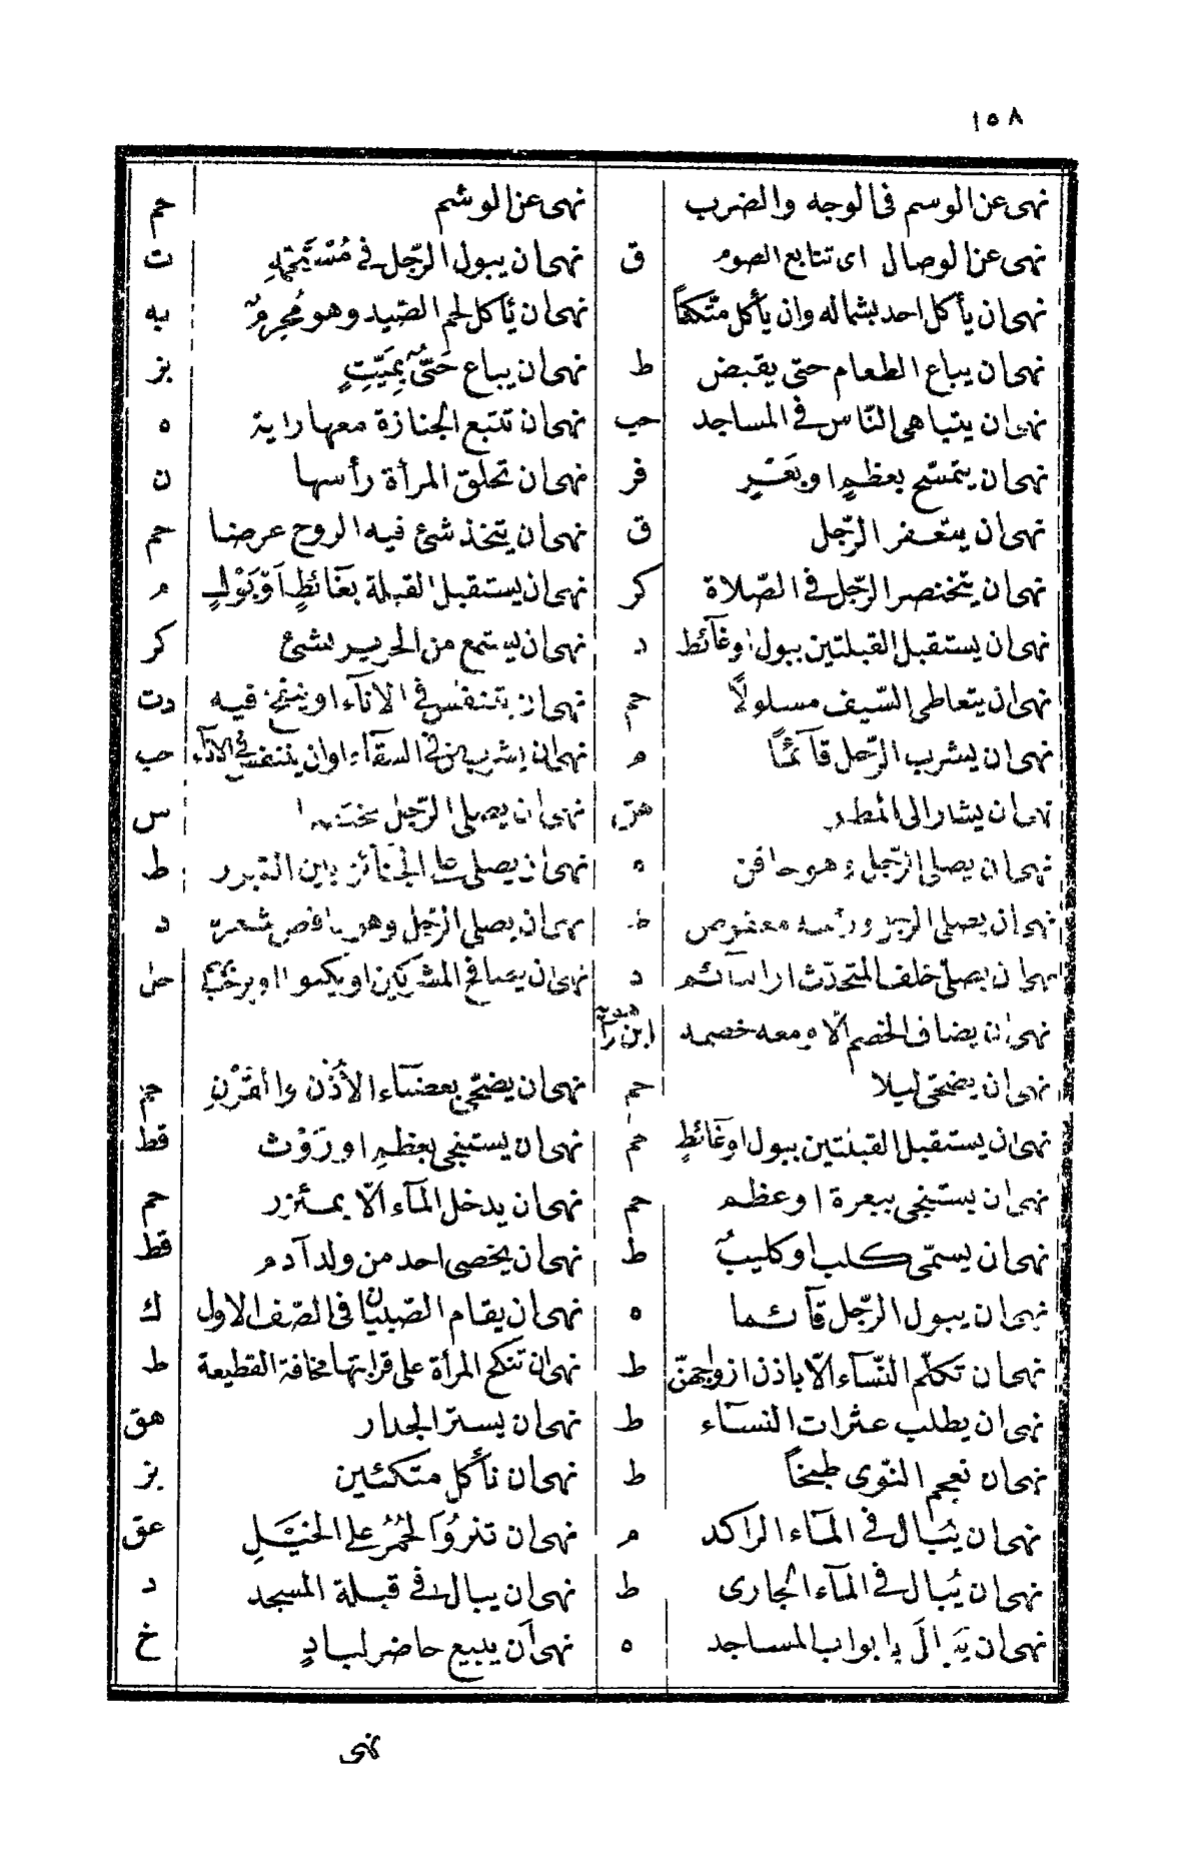 ١٥٨
نهى عن الوسم فى الوجه والضرب نهى عن الوشم حم
نهى عن الوصال اى تتابع الصوم ق نهى ان يبول الرّجل فى مُسْتَحَمِّهِ ت
نهى ان يأكل احد بشماله وان يأكل متّكئاً نهى ان يؤكل لحم الصّيد وهو مُحْرِمٌ يه
نهى ان يباع الطعام حتى يقبض ط نهى ان يباع حَىٌّ بِمَيِّتٍ بز
نهى ان يتباهى النّاس فى المساجد حب نهى ان تتبع الجنازة معها راية ه
نهى ان يتمسّح بعظمٍ او بَعْرٍ فر نهى ان تحلق المرأة رأسها ن
نهى ان يتزعفر الرّجل ق نهى ان يتخذ شئ فيه الروح عرضا حم
نهى ان يتخصر الرّجل فى الصّلاة كر نهى ان يستقبل القبلة بغَائطٍ اَوْ بَوْلٍ م
نهى ان يستقبل القبلتين ببول او غآئط د نهى ان يستمتع من الحرير بشئ كر
نهى ان يتعاطى السّيف مسلولًا حم نهى ان يتنفس فى الانآء او ينفخ فيه دت
نهى ان يشرب الرّجل قآئمًا م نهى ان يشرب من فى السقآء او ان يتنفس فى الانآء حب
نهى ان يشار الى المطر هق نهى ان يصلى الرّجل مختصرا س
نهى ان يصلى الرّجل وهو حاقن ه نهى ان يصلى على الجنائز بين القبور ط
نهى ان يصلى الرجل ورأسه معقوص نهى ان يصلى الرّجل وهو عاقص شعره د
نهى ان يصلى خلف المتحدّث او النآئم د نهى ان يصافح المشركين او يكنوا او يرحّب حل
نهى ان يضاف الخصم الّا ومعه خصمه ابن
نهى ان يضحّى ليلا حم نهى ان يضحّى بعضبآء الأُذُن والقَرْنِ حم
نهى ان يستقبل القبلتين ببول او غآئطٍ حم نهى ان يستنجى بعظمٍ او رَوْث قط
نهى ان يستنجى ببعرة او عظم حم نهى ان يدخل المآء الّا بمئزر حم
نهى ان يسمّى كلب او كليبٌ ط نهى ان يخصى احد من ولد آدم قط
نهى ان يبول الرّجل قآئما ه نهى ان يقام الصّبيان فى الصّف الاول ك
نهى ان تكلّم النّسآء الّا باذن ازواجهنّ ط نهى ان تنكح المرأة على قرابتها مخافة القطيعة ط
نهى ان يطلب عثرات النسآء ط نهى ان يستر الجدار هق
نهى ان نعجم النّوى طبخًا ط نهى ان نأكل متكئين بز
نهى ان يُبال فى المآء الراكد م نهى ان تنزوُ الحُمُرُ على الخَيْلِ عق
نهى ان يُبال فى المآء الجارى ط نهى ان يبال فى قبلة المسجد د
نهى ان يبال بابواب المساجد ه نهى ان يبيع حاضر لبادٍ خ
نهى